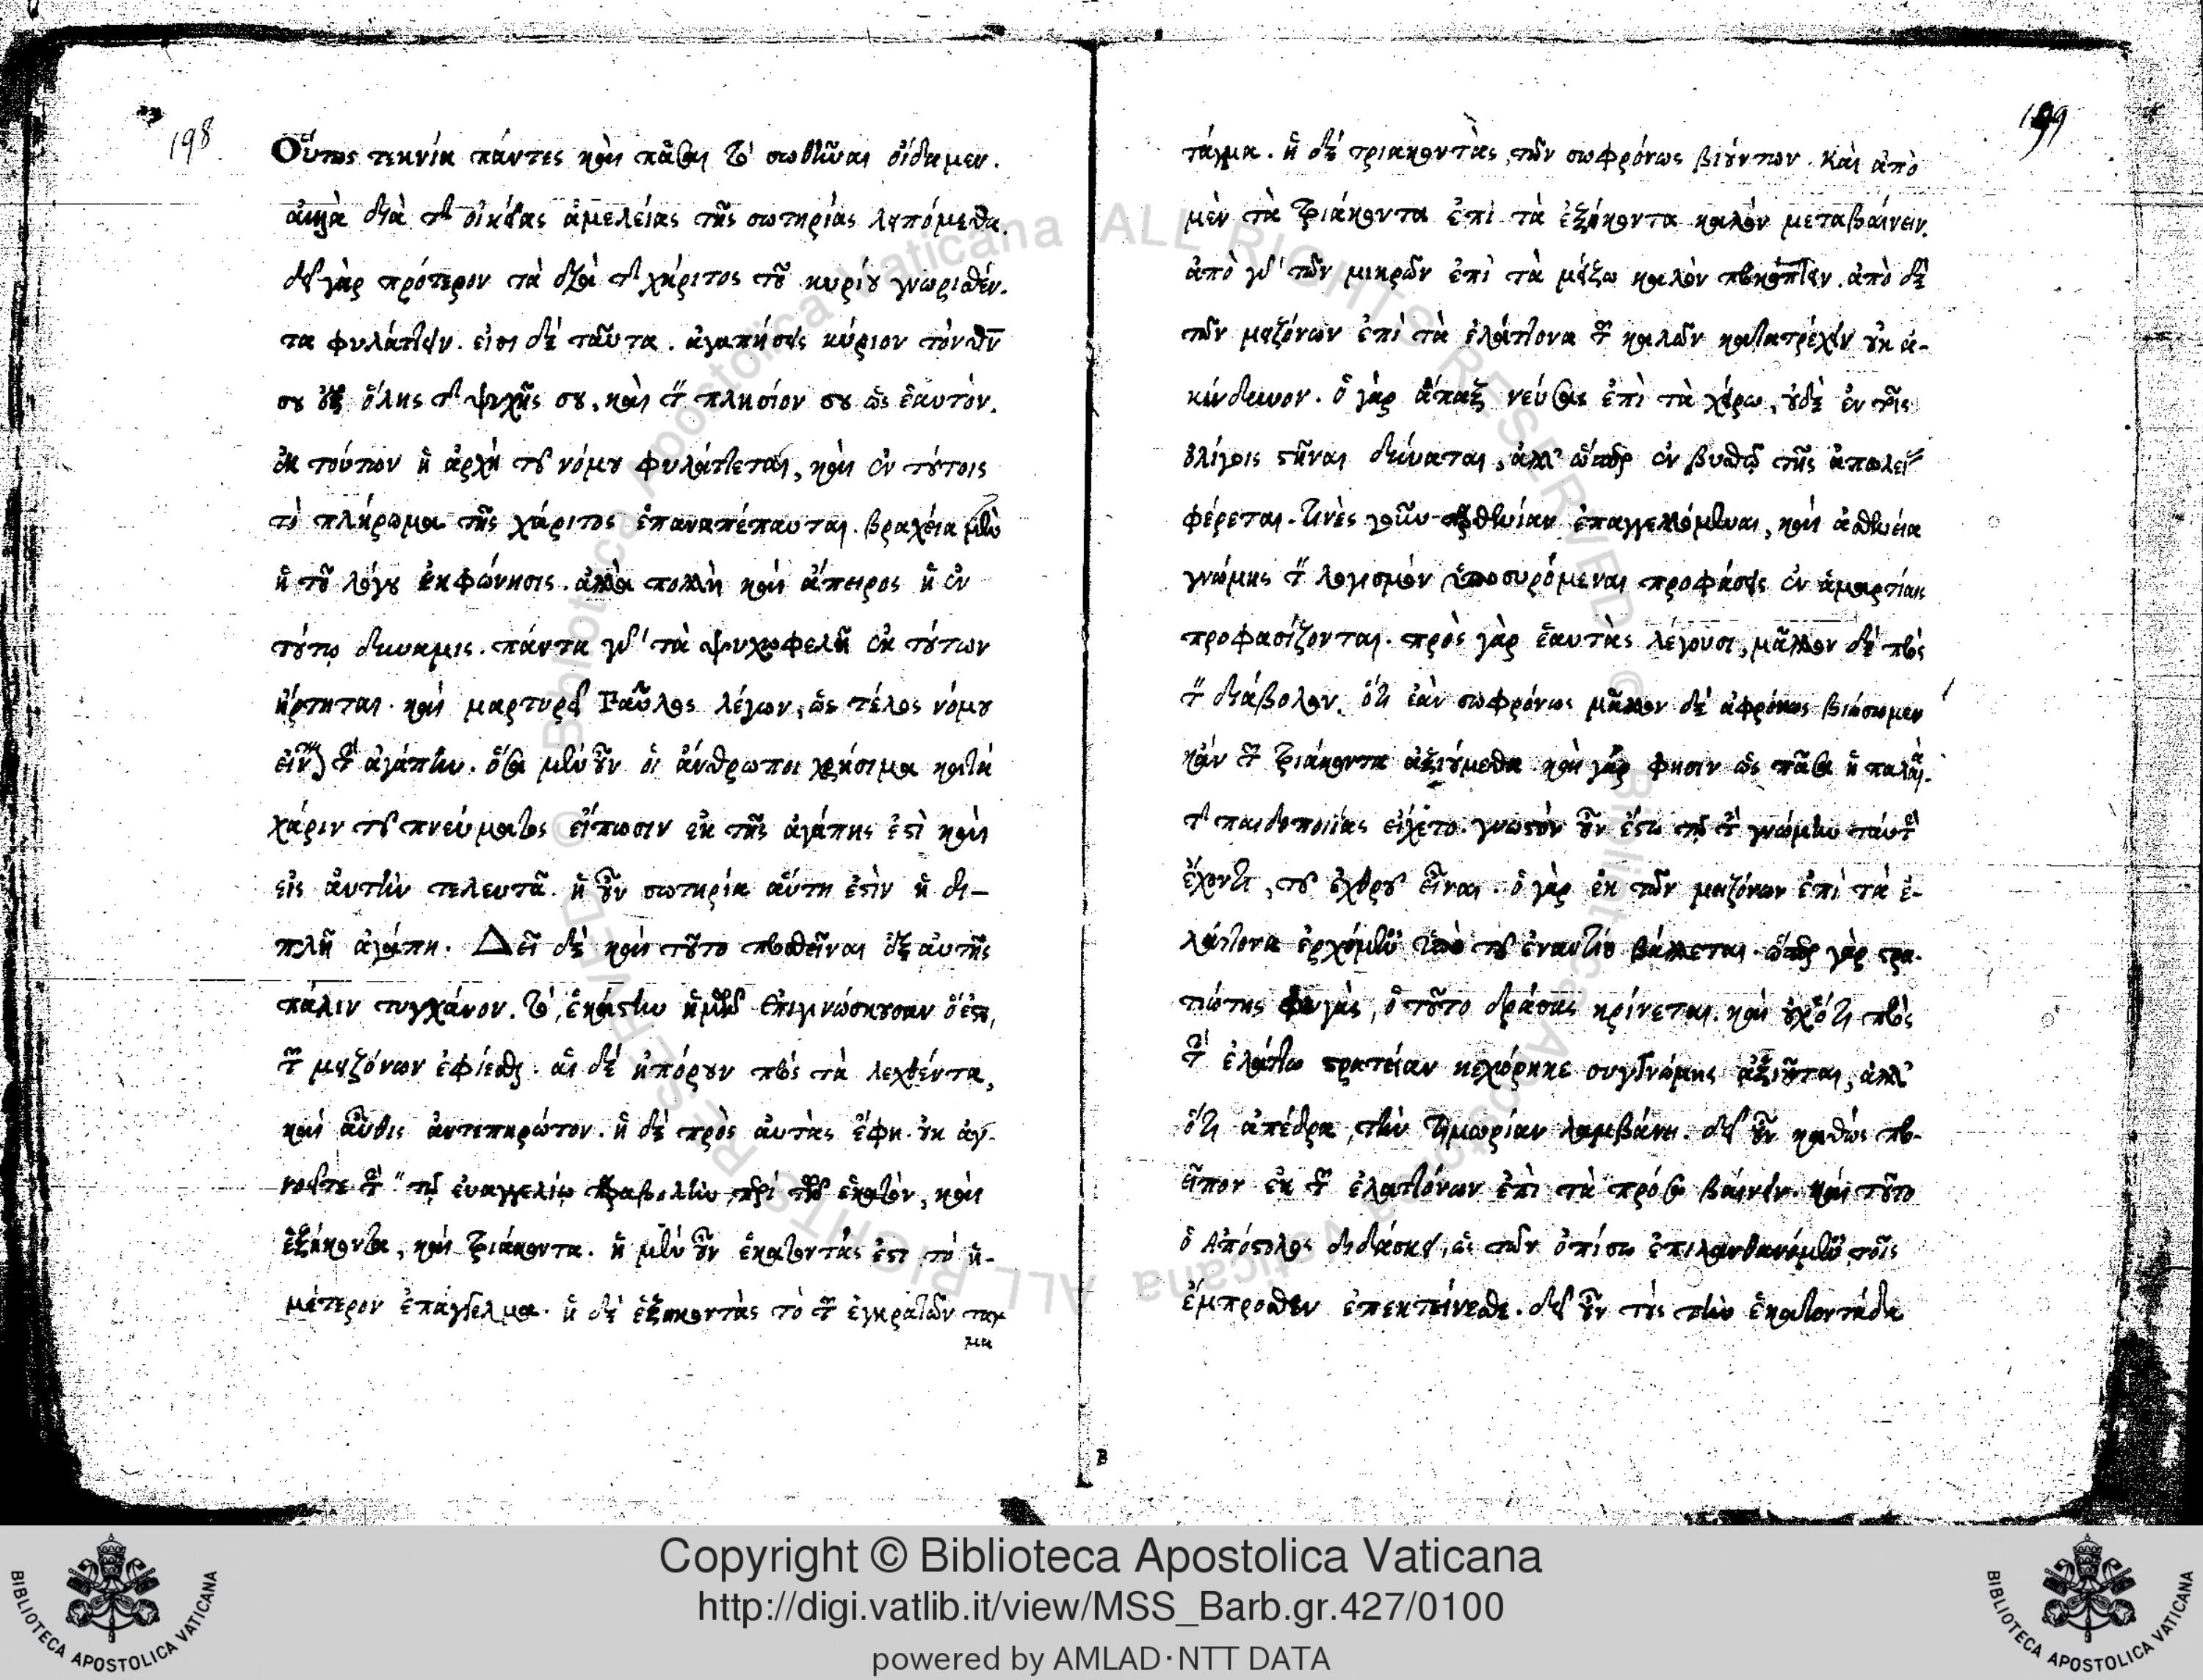 198
Οὕτως τεκνία πάντες καὶ πᾶσαι τὸ σωθῆναι οἴδαμεν.
ἀλλὰ διὰ τῆς οἰκείας ἀμελείας τῆς σωτηρίας λιπόμεθα.
δεῖ γὰρ πρότερον τὰ διὰ τῆς χάριτος τοῦ κυρίου γνωρισθέν-
τα φυλάττειν. εἰσι δὲ ταῦτα. ἀγαπήσεις κύριον τόν θν
σου ἐξ ὅλης τῆς ψυχῆς σου, καὶ τὸν πλησίον σου ὡς ἑαυτὸν.
ἐκ τούτων ἡ ἀρχὴ τοῦ νόμου φυλάττεται, καὶ ἐν τούτοις
τὸ πλήρωμα τῆς χάριτος ἐπαναπέπαυται. βραχεῖα μὲν
ἡ τοῦ λόγου ἐκφώνησις. ἀλλὰ πολλὴ καὶ ἄπειρος ἡ ἐν
τούτῳ δύναμις. πάντα γὰρ τὰ ψυχωφελῆ ἐκ τούτων
ἤρτηται. καὶ μαρτυρεῖ Παῦλος λέγων, ὡς τέλος νόμου
εἶναι τὴν ἀγάπην. ὅσα μὲν οὖν οἱ ἄνθρωποι χρήσιμα κατὰ
χάριν τοῦ πνεύματος εἴπωσιν ἐκ τῆς ἀγάπης ἐστὶ καὶ
εἰς αὐτὴν τελευτᾶ. ἡ οὖν σωτηρία αὕτη ἐστὶν ἡ δι-
πλῆ ἀγάπη. Δεῖ δὲ καὶ τοῦτο προσθεῖναι ἐξ αὐτῆς
πάλιν τυγχάνον. τὸ, ἑκάστην ἡμῶν ἐπιγινώσκουσαν ὅ ἐστι,
τῶν μειζόνων ἐφίεσθαι. αἱ δὲ ἠπόρουν πρὸς τὰ λεχθέντα,
καὶ αὖθις ἀντεπηρώτον. ἡ δὲ πρὸς αὐτὰς ἔφη. οὐκ ἀγ-
νοεῖτε τὴν ἐν τῷ εὐαγγελίῳ παραβολὴν, περὶ τῶν ἑκατὸν, καὶ
ἑξήκοντα, καὶ τριάκοντα. ἡ μὲν οὖν ἑκατοντὰς ἐστι τὸ ἡ-
μέτερον ἐπάγγελμα. ἡ δὲ ἑξηκοντὰς τὸ τῶν ἐγκρατῶν ταγ
μα
199
τάγμα. ἡ δὲ τριακοντὰς, τῶν σωφρόνως βιούντων. Καὶ ἀπὸ
μὲν τὰ τριάκοντα ἐπὶ τὰ ἑξήκοντα καλὸν μεταβαίνειν.
ἀπὸ γὰρ τῶν μικρῶν ἐπὶ τὰ μείζω καλὸν προκόπτειν. ἀπὸ δὲ
τῶν μειζόνων ἐπὶ τὰ ἐλάττονα τῶν καλῶν κατατρέχειν οὐκ ἀ-
κίνδυνον. ὁ γὰρ ἅπαξ νεύσας ἐπὶ τὰ χείρω, οὐδὲ ἐν τοῖς
ὀλίγοις στῆναι δύναται, ἀλλ' ὥσπερ ἐν βυθῷ τῆς ἀπωλείας
φέρεται. τινὲς γοῦν παρθενίαν ἐπαγγελλόμεναι, καὶ ἀσθενείᾳ
γνώμης τὸν λογισμὸν ὑποσυρόμεναι προφάσεις ἐν ἁμαρτίαις
προφασίζονται. πρὸς γὰρ ἑαυτὰς λέγουσι, μᾶλλον δὲ πρὸς
τὸν διάβολον, ὅτι ἐὰν σωφρόνως μᾶλλον δὲ ἀφρόνως βιώσωμεν
κἂν τῶν τριάκοντα ἀξιούμεθα. καὶ γὰρ φησιν ὡς πᾶσα ἡ παλαιὰ
τῆς παιδοποιίας εἴχετο. γνωστὸν οὖν ἔστω τῷ τὴν γνώμην ταύτην
ἔχοντι, τοῦ ἐχθροῦ εἶναι. ὁ γὰρ ἐκ τῶν μειζόνων ἐπὶ τὰ ἐ-
λάττονα ἐρχόμενος ὑπὸ τοῦ ἐναντίου βάλλεται. ὥσπερ γὰρ στρα-
τιώτης φυγὰς, ὁ τοῦτο δράσας κρίνεται. καὶ οὐχ' ὅτι πρὸς
τὴν ἐλάττω στρατείαν κεχώρηκε συγγνώμης ἀξιοῦται, ἀλλ'
ὅτι ἀπέδρα, τὴν τιμωρίαν λαμβάνει. δεῖ οὖν καθὼς προ-
εῖπον ἐκ τῶν ἐλαττόνων ἐπὶ τὰ πρόσω βαίνειν. καὶ τοῦτο
ὁ Ἀπόστολος διδάσκει, ὡς τῶν ὀπίσω ἐπιλανθανόμενος τοῖς
ἔμπροσθεν ἐπεκτείνεσθε. δεῖ οὖν τὰς τὴν ἑκατοντάδα
Copyright © Biblioteca Apostolica Vaticana
http://digi.vatlib.it/view/MSS_Barb.gr.427/0100
powered by AMLAD·NTT DATA
BIBLIOTECA APOSTOLICA VATICANA
BIBLIOTECA APOSTOLICA VATICANA